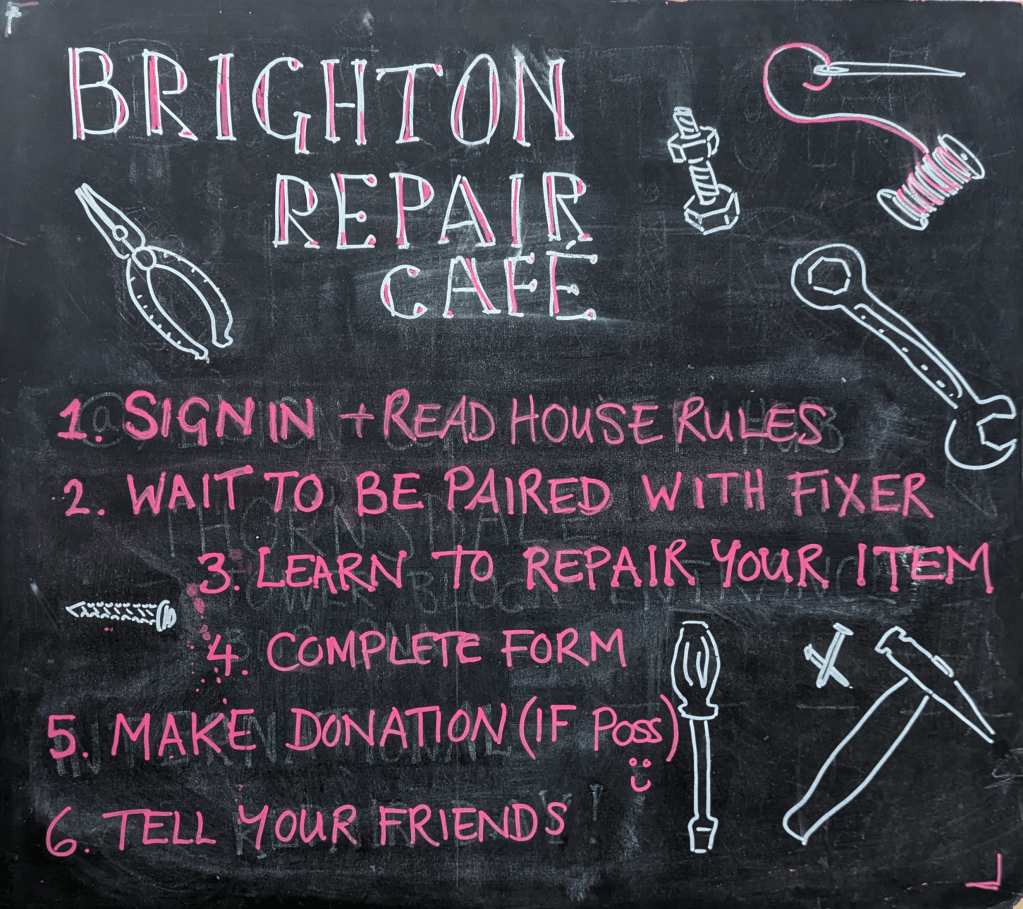 BRIGHTON
REPAIR
CAFÉ
1. SIGN IN + READ HOUSE RULES
2. WAIT TO BE PAIRED WITH FIXER
3. LEARN TO REPAIR YOUR ITEM
4. COMPLETE FORM
5. MAKE DONATION (IF POSS)
6. TELL YOUR FRIENDS